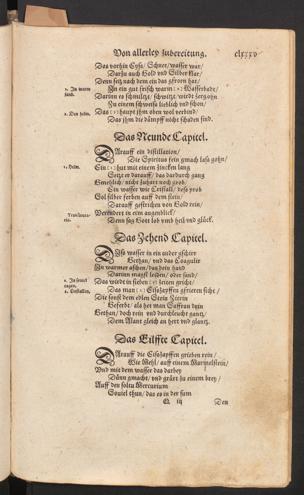 Von allerley zubereitung. clxxxv
Das vorhin Eysz / Schnee / wasser war /
Darzu auch Gold und Silber klar /
Denn setz nach dem ein das gfroren har /
1. In warm sand.
In ein gut frisch warm (1) Wasserbadt /
Darinn es schmültzt / schwitzt / wirdt
Zu einem schweisz lieblich und schon /
2. Den helm.
Das (2) haupt jhm oben wol verbind /
Das jhm die dämpff nicht schaden sind.
Das Neunde Capitel.
DArauff ein distillation /
Die Spiritus fein gmach lasz gohn /
1. Helm.
Ein (1) hut mit einem zincken lang
Setzt er darauff / das dardurch gang
Gmehlich / nicht zuhart noch grob /
Ein wasser wie Cristall / desz prob
Gol silber serben auff dem stein /
Darauff gestrichen von Gold rein /
Verendert in eim augenblick /
Dem sag Gott lob umb heil und glück.
Das Zehend Capitel.
DIsz wasser in ein ander gschirr
Gethan / und das Coagulir
In warmer aschen / das dein hand
Darinn magst leiden / oder sand /
1. In sentesagen.
Das wirdt in sieben (1) zeiten gricht /
2. Cristallen.
Das man (2) Eiszzapffen gfrieren sicht /
Die sonst dem edlen Stein Zitrin
Geferbt / als het man Saffran drin
Gethan / doch rein und durchleucht gantz /
Dem Alant gleich an herr und glantz.
Das Eilffte Capitel.
DArauff die Eiszzapffen grieben rein /
Wie Mehl / auff einem Marmelstein /
Und mit dem wasser das darbey
Dünn gmacht / und grürt zu einem brey /
Auff den soltu Mercurium
Souiel thun / das es in der sum
Q iij Den